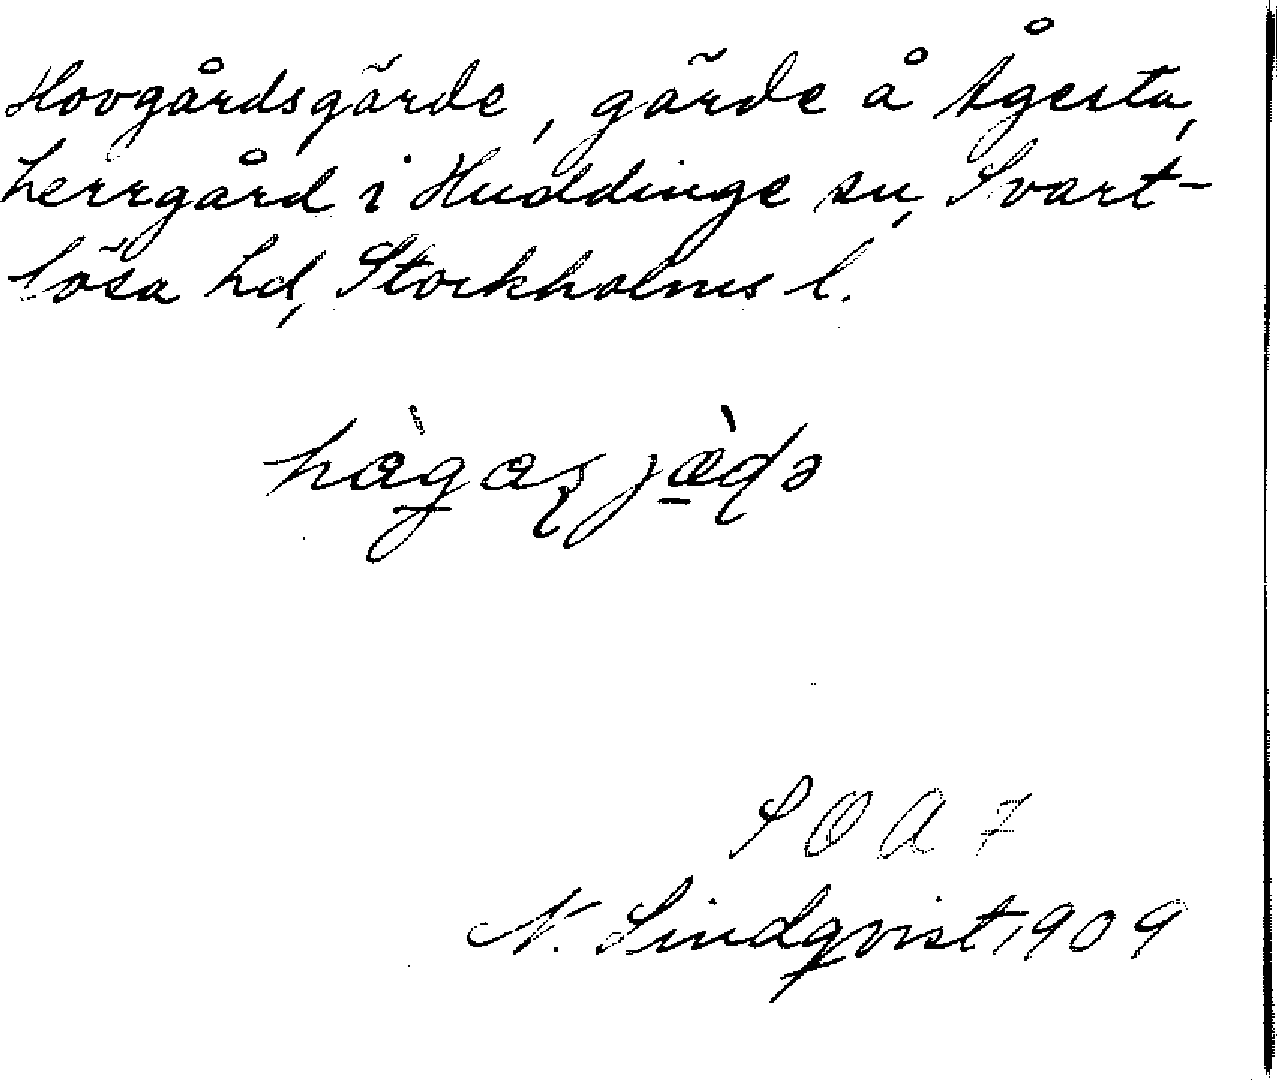 Hovgårdsgärde, gärde å Ågesta,
herrgård i Huddinge sn, Svart-
lösa hd, Stockholms l.
SOA 7
N. Lindqvist 1909